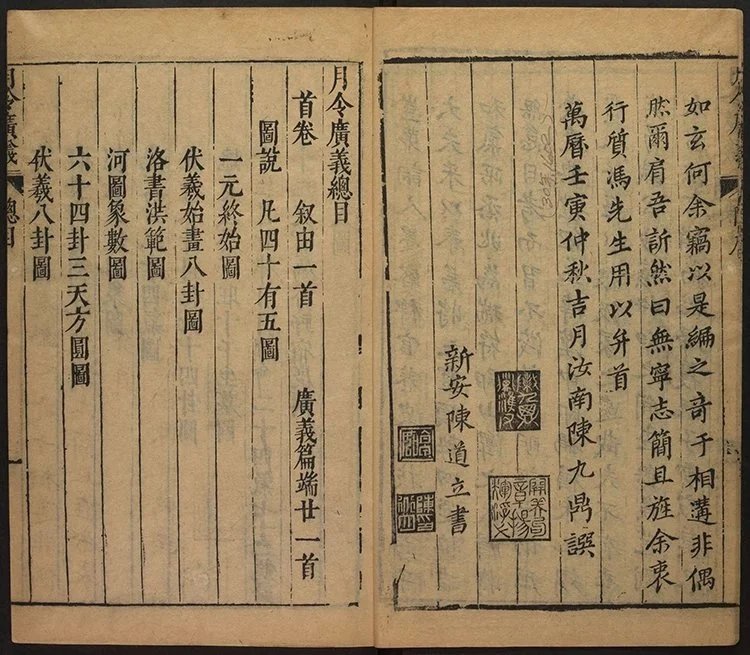 如玄何余竊以是編之奇于相溝非偶
然爾肩吾訢然曰無寧志簡且旌余衷
行質馮先生用以弁首
萬曆壬寅仲秋吉月汝南陳九鼎譔
新安陳道立書
月令廣義總目
首卷 叙由一首 廣義篇端廿一首
圖說 凡四十有五圖
一元終始圖
伏羲始畫八卦圖
洛書洪範圖
河圖象數圖
六十四卦三天方圓圖
伏羲八卦圖
月令廣義 總目 一